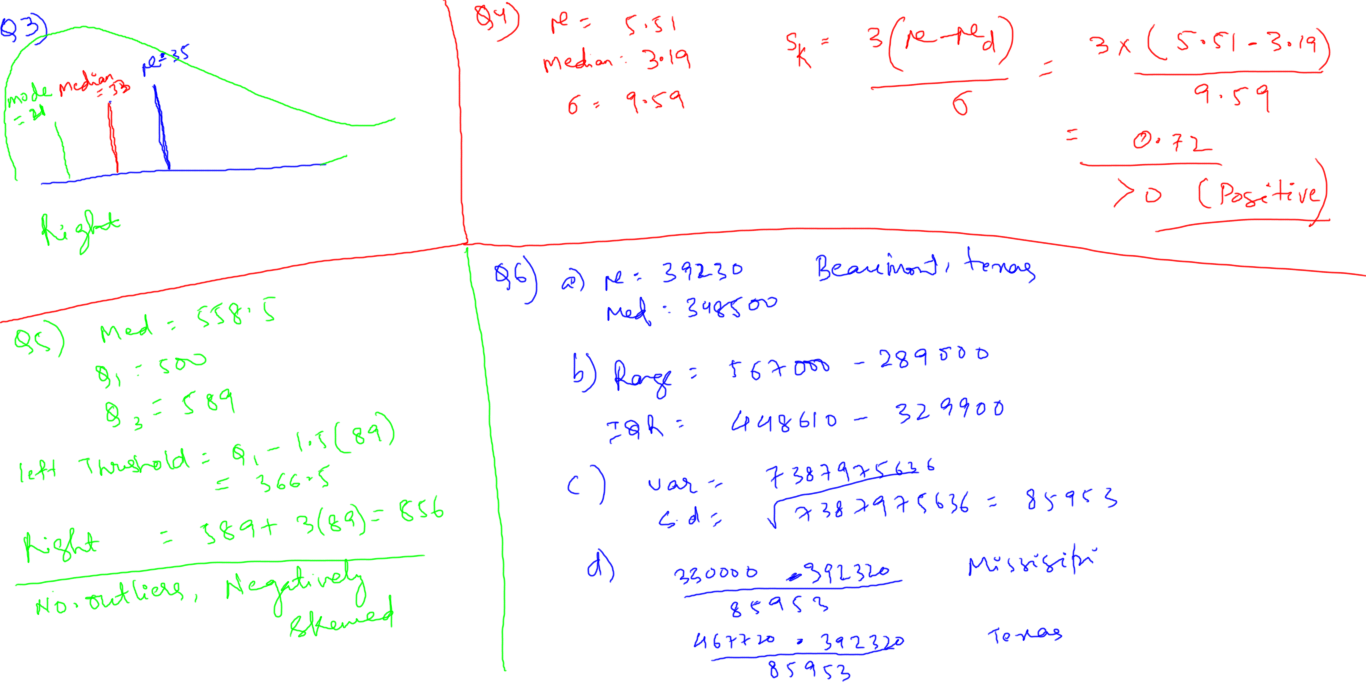 Q3)
μ = 35
median = 33
mode = 21
Right
Q4) μ = 5.51
median : 3.19
σ = 9.59
Sk = 3(μ - μd) / σ = 3 × (5.51 - 3.19) / 9.59
= 0.72
> 0 (Positive)
Q5) Med = 558.5
Q1 = 500
Q3 = 589
left Threshold = Q1 - 1.5(89)
= 366.5
Right = 589 + 3(89) = 856
No. outliers, Negatively
skewed
Q6) a) μ = 39230 Beaumont, texas
Med : 348500
b) Range = 567000 - 289000
IQR = 448610 - 329900
c) var = 7387975636
s.d = √7387975636 = 85953
d) 330000 - 392320 / 85953 Missisipi
467720 - 392320 / 85953 Texas